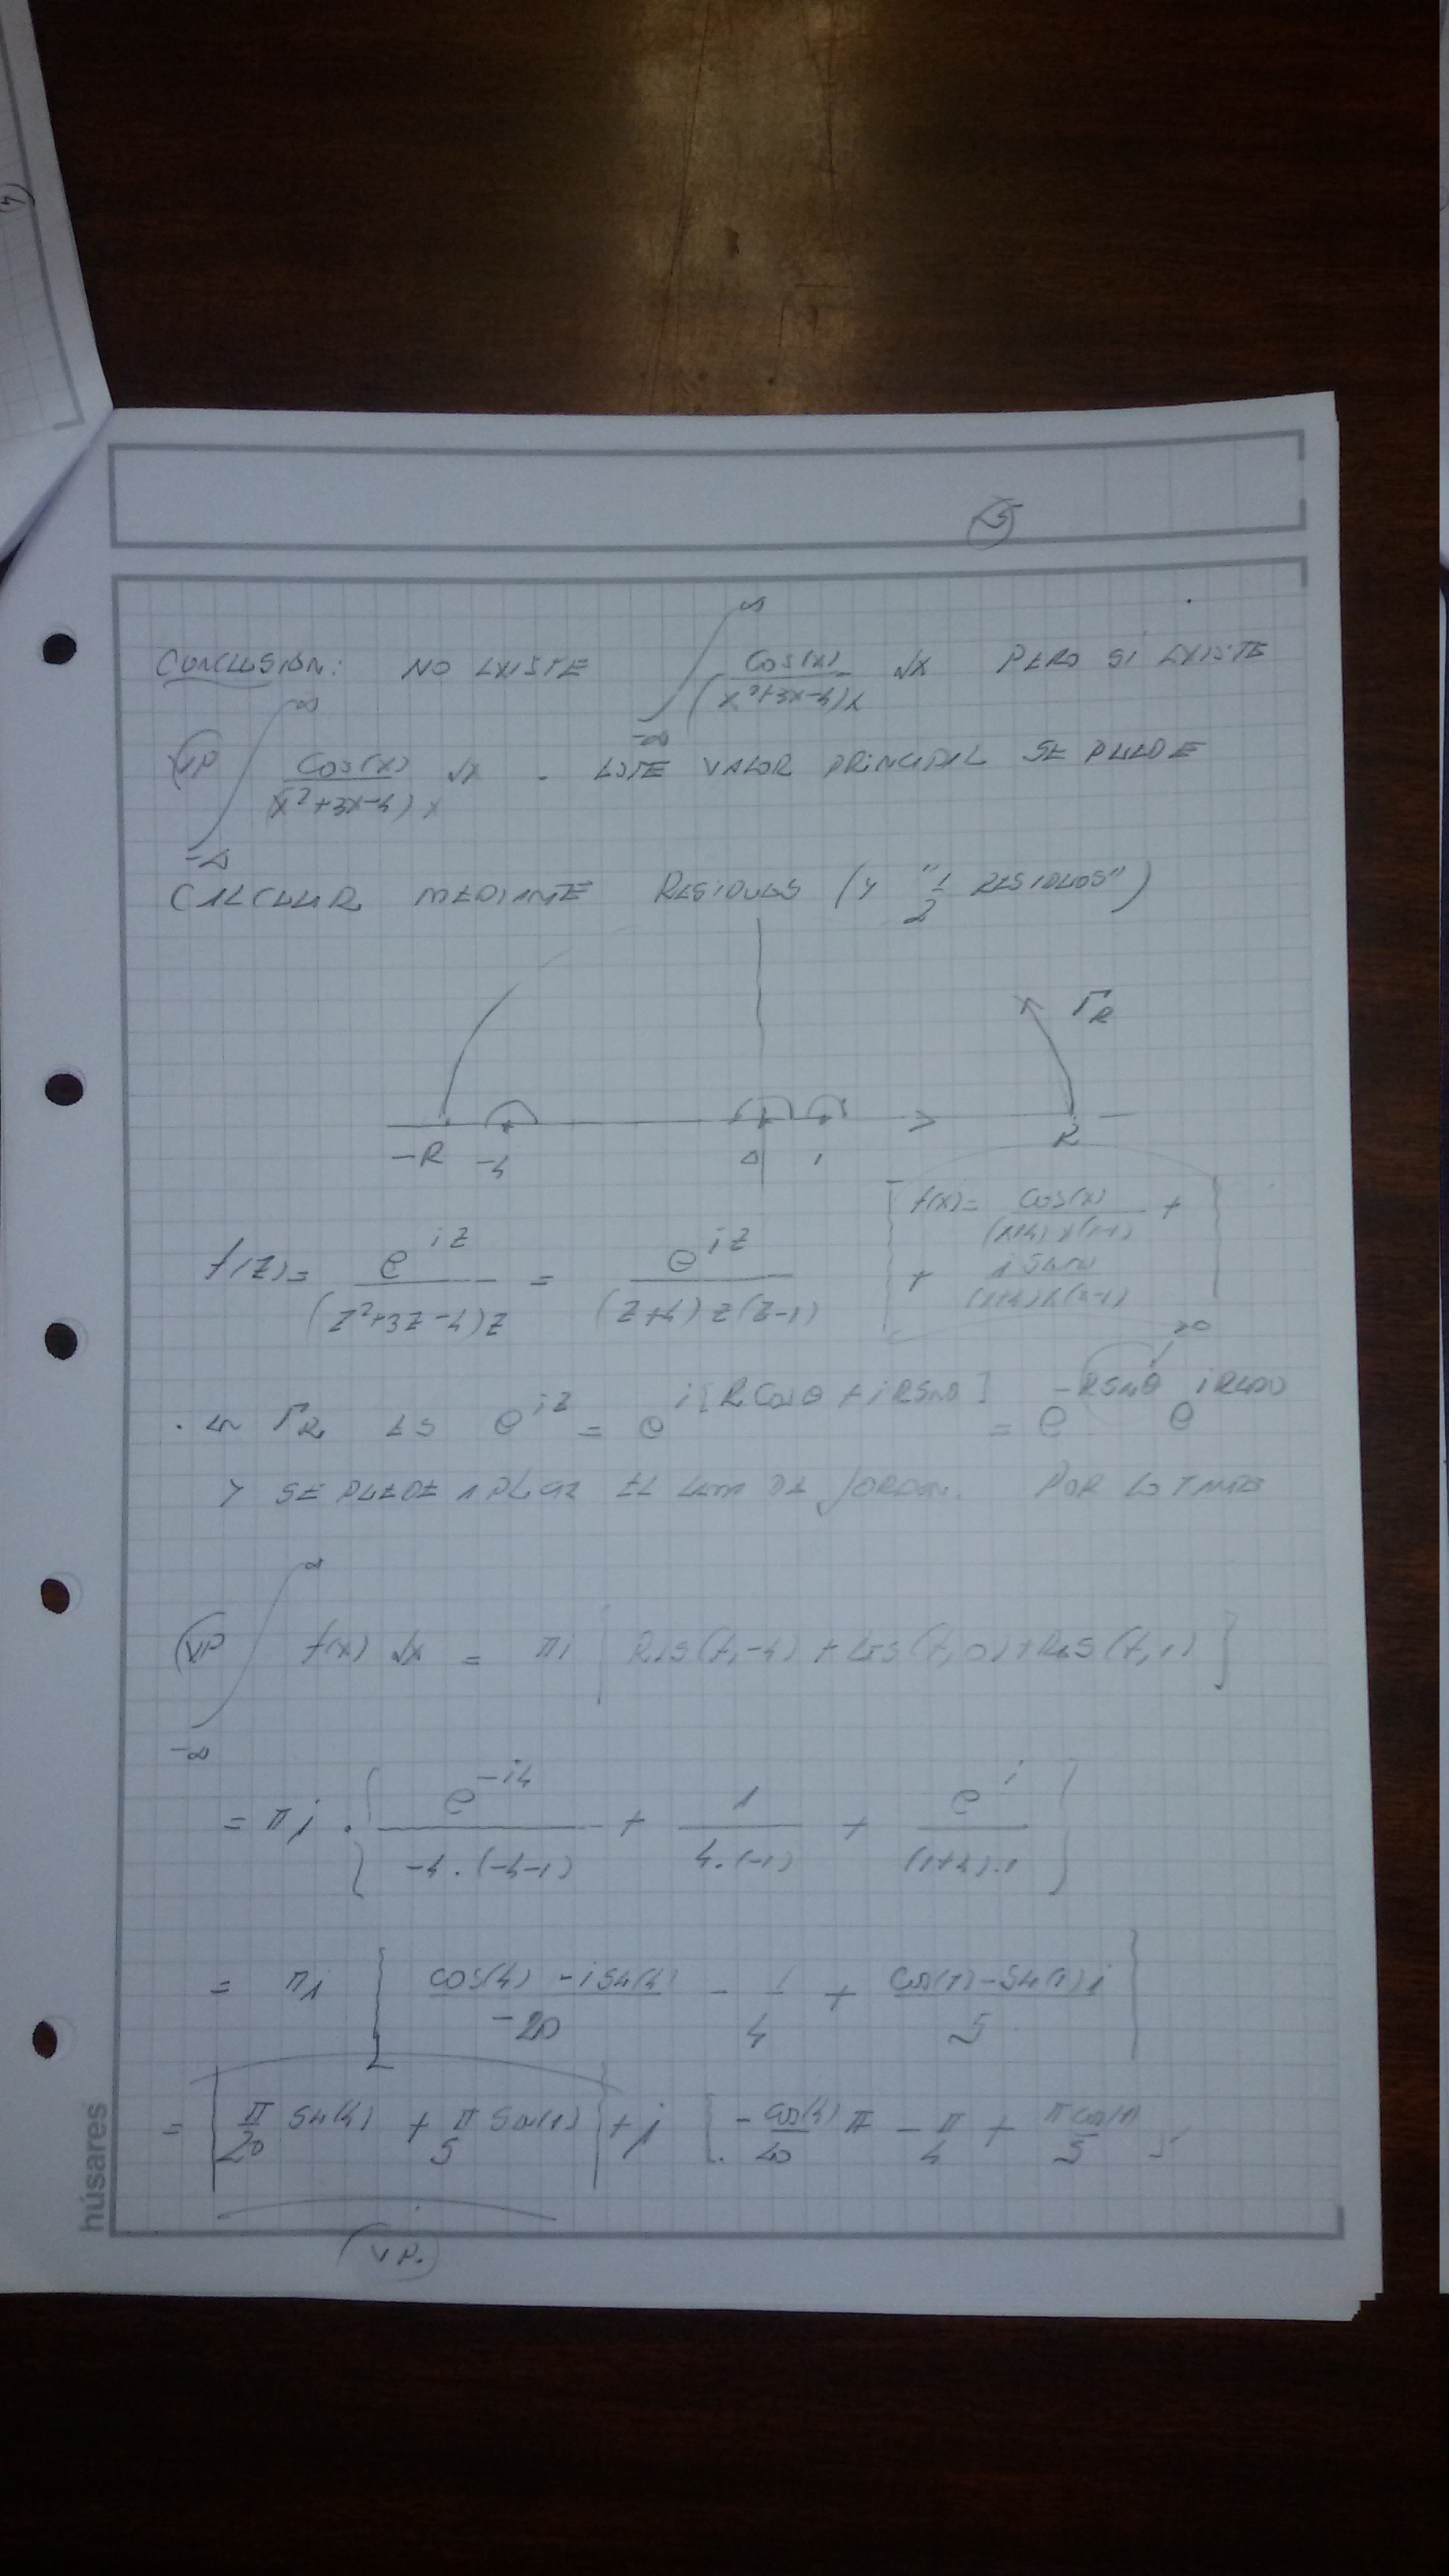 5
CONCLUSIÓN: NO EXISTE ∫_{-∞}^{∞} cos(x)/((x²+3x-4)x) dx PERO SI EXISTE
(VP) ∫_{-∞}^{∞} cos(x)/((x²+3x-4)x) dx. ESTE VALOR PRINCIPAL SE PUEDE
CALCULAR MEDIANTE RESIDUOS (Y "1/2 RESIDUOS")
Γ_R
-R -4 0 1 R
f(z) = e^{iz}/((z²+3z-4)z) = e^{iz}/((z+4)z(z-1)) [f(x) = cos(x)/((x+4)x(x-1)) +
+ i sen(x)/((x+4)x(x-1))]
. EN Γ_R ES e^{iz} = e^{i[R cos θ + i R sen θ]} = e^{-R sen θ} e^{i R cos θ} >0
Y SE PUEDE APLICAR EL LEMA DE JORDAN. POR LO TANTO
(VP) ∫_{-∞}^{∞} f(x) dx = πi [Res(f,-4) + Res(f,0) + Res(f,1)]
= πi · {e^{-i4}/(-4·(-4-1)) + 1/(4·(-1)) + e^{i}/((1+4)·1)}
= πi [(cos(4) - i sen(4))/(-20) - 1/4 + (cos(1) - sen(1) i)/5]
= [π/20 sen(4) + π/5 sen(1)] + i [-cos(4)/20 π - π/4 + π cos(1)/5]
(V.P.)
húsares